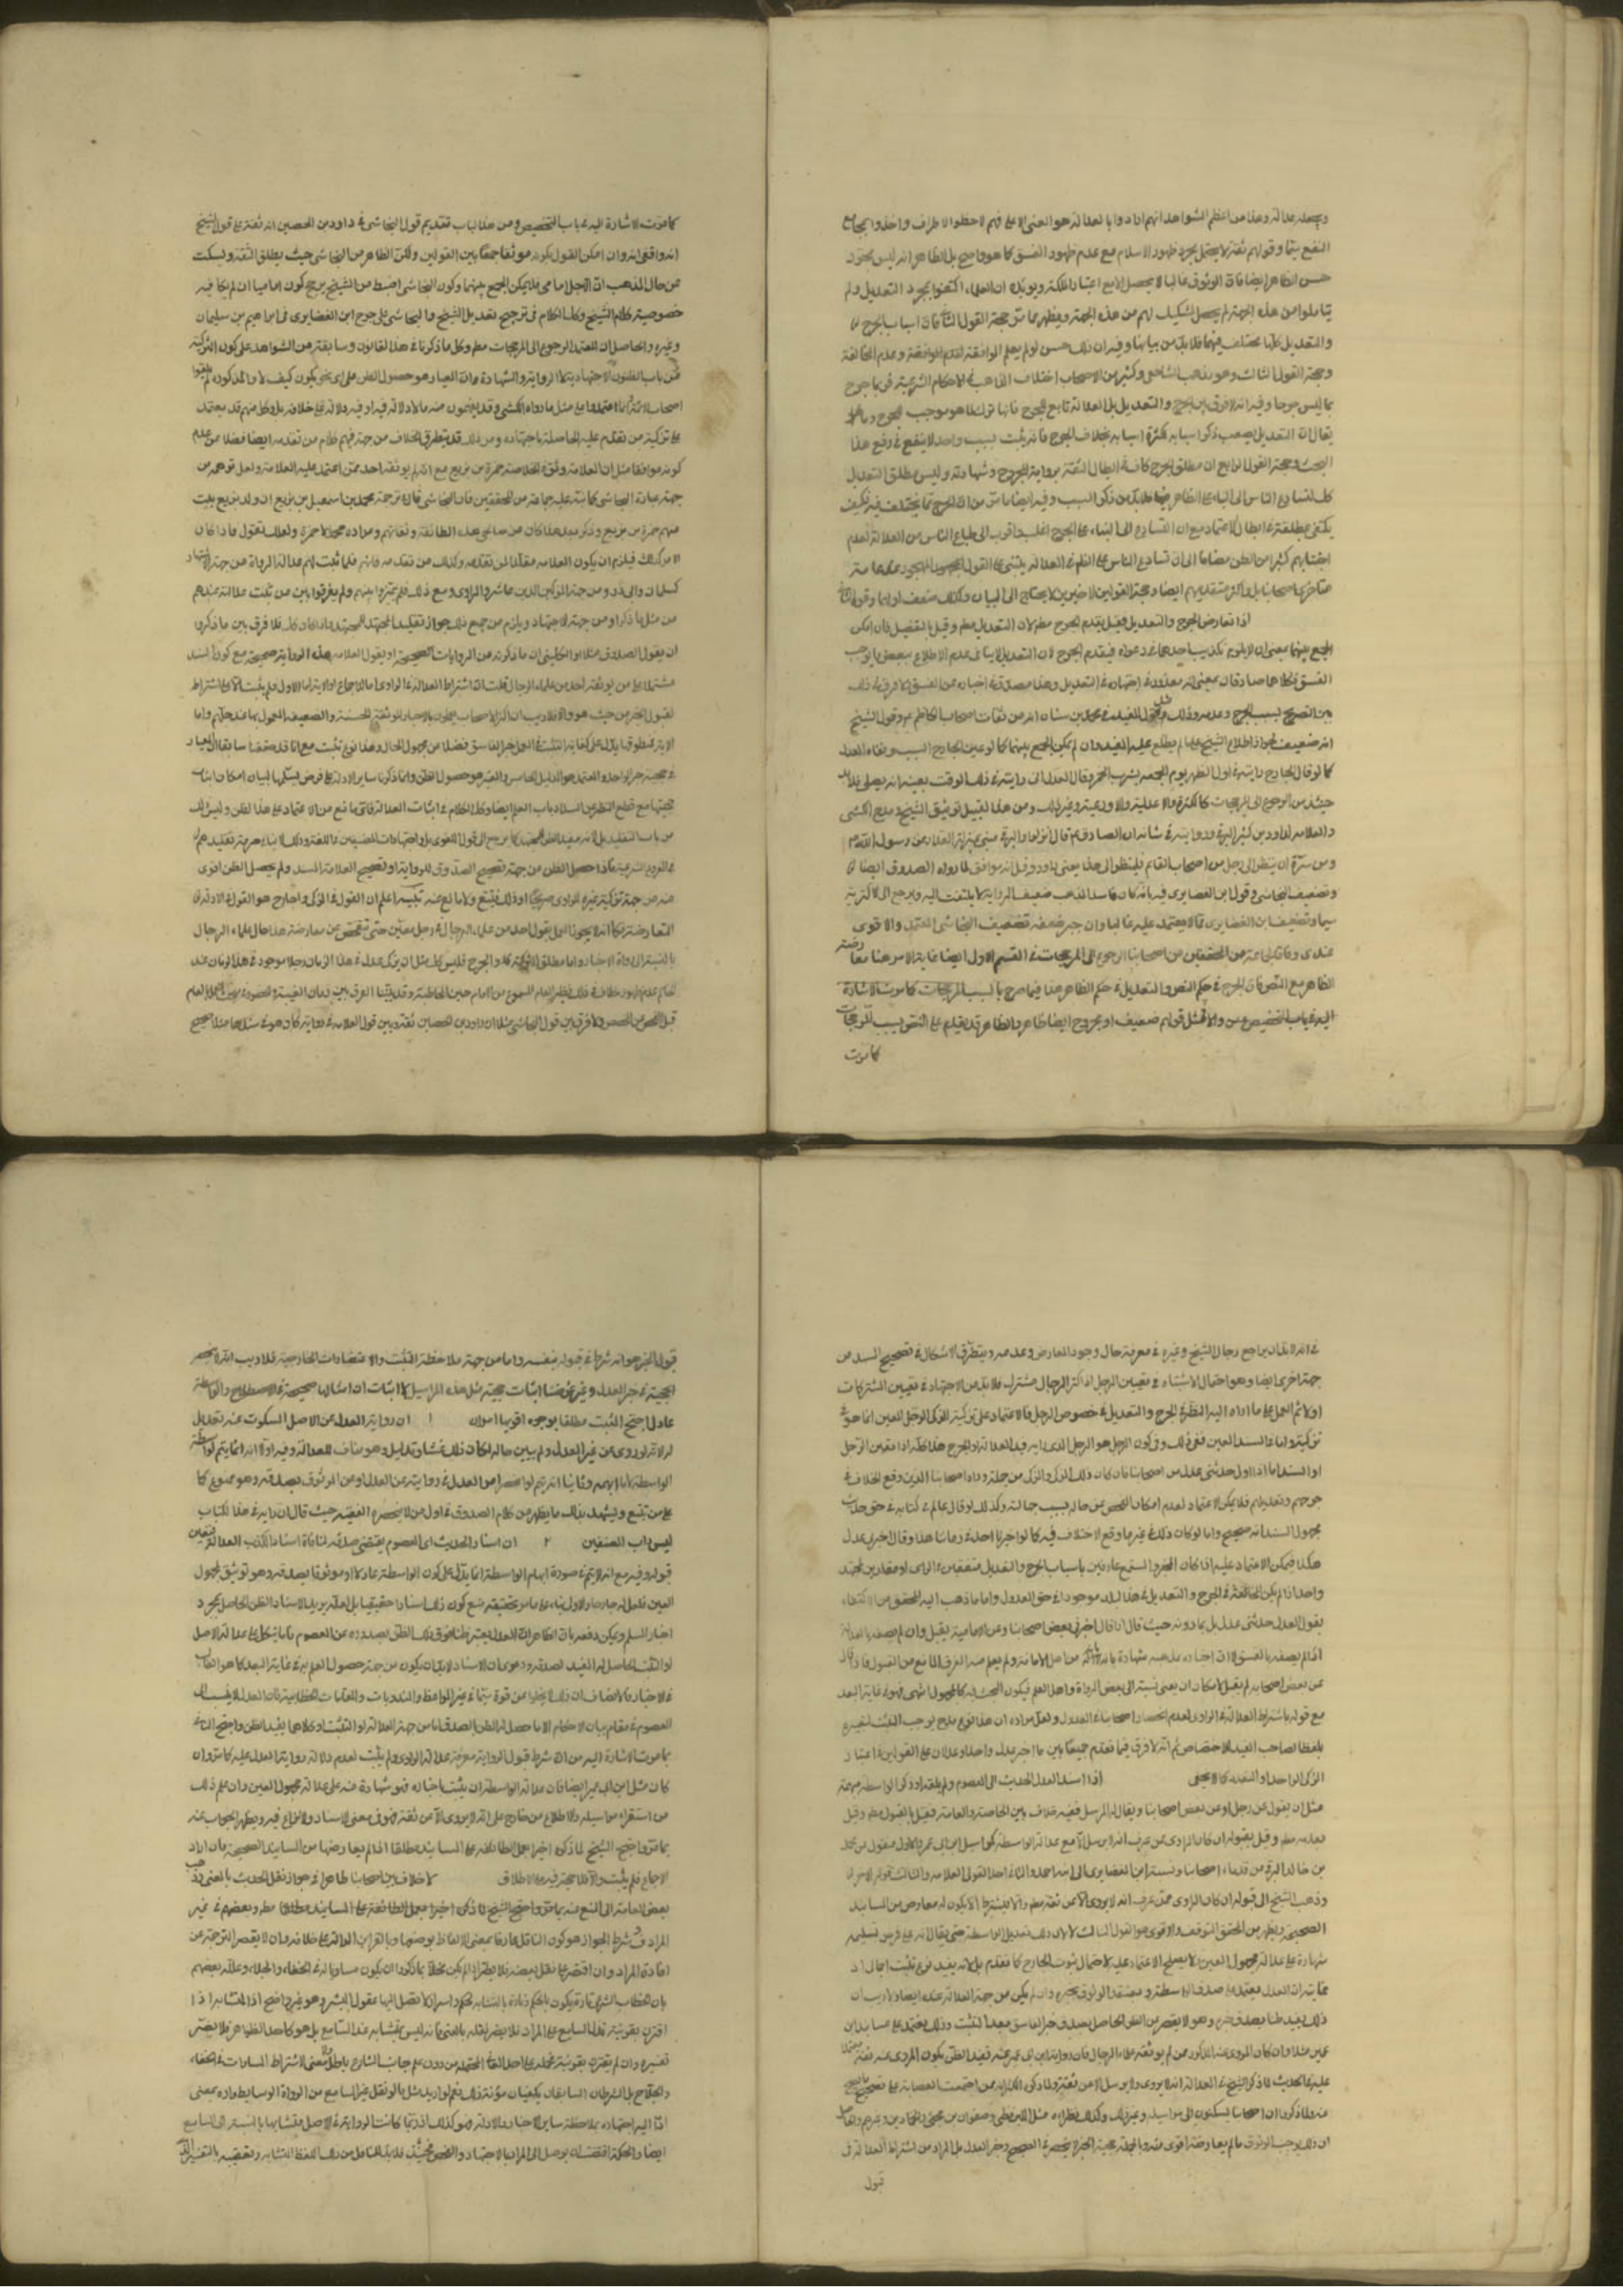 وهذا من اعظم الشواهد انهم ارادوا بالعدالة هو المعنى الاعلى فهم لاحظوا الاطراف واخذوا بمجامع
النفع وقولهم ثقة لا يحتمل مجرد ظهور الاسلام مع عدم ظهور الفسق كما هو واضح بل الظاهر انه ليس مجرد
حسن الظاهر ايضا فان الوثوق غالبا لا يحصل الا مع اعتبار الملكة ويؤيده ان العلماء اكتفوا بمجرد التعديل ولم
يتاملوا من هذه الجهة ولم يحصل التشكيك لهم من هذه الجهة ويظهر مما مر حجة القول الثاني فان اسباب الجرح
والتعديل كلتا مختلف فيهما فلابد من بيانها وفيه ان ذلك حسن لو لم يعلم الموافقة او عدم المخالفة
وحجة القول الثالث وهو مذهب الشافعي وكثير من الاصحاب اختلاف المذاهب في الاحكام الشرعية فربما جرح
بما ليس جرحا وفيه انه لا فرق بين الجرح والتعديل بل العدالة تابع للجرح فانها ترك لما هو موجب للجرح وما
يقال ان التعديل يصعب ذكر اسبابه لكثرة اسبابه بخلاف الجرح فانه يثبت بسبب واحد لا ينفع في دفع هذا
البحث وحجة القول الرابع ان مطلق الجرح كاف في ابطال الثقة برواية المجروح وشهادته وليس مطلق التعديل
كك لتسارع الناس الى البناء على الظاهر فيها فلابد من ذكر السبب وفيه ايضا ما مر من ان الجرح مما يختلف فيه فكيف
يكتفى بمطلقه في ابطال الاعتماد مع ان التسارع الى البناء على الجرح اغلب واقرب الى طباع الناس من العدالة لعدم
اجتنابهم كثيرا من الظن مضافا الى ان تسارع الناس على الظاهر في العدالة يبتني على القول
متاخري اصحابنا بل واكثر متقدميهم ايضا وحجة القولين الاخيرين لا يحتاج الى البيان وكذلك ضعف اولهما وقوة
اذا تعارض الجرح والتعديل فقيل يقدم الجرح مطلقا وقيل التعديل مطم وقيل بالتفصيل فان امكن
الجمع بينهما بمعنى ان لا يلزم تكذيب احدهما في دعواه فيقدم الجرح لان التعديل لا ينافى عدم الاطلاع ببعض ما يوجب
الفسق فكلاهما صادقان بمعنى انه معذور في اجتهاده في التعديل وهذا مصدق في اخباره عن الفسق ولا فرق في ذلك
بين التصريح بسبب الجرح وعدمه وذلك مثل قول المفيد في محمد بن سنان انه من ثقات اصحاب الكاظم ع وقول الشيخ
انه ضعيف لجواز اطلاع الشيخ على ما لم يطلع عليه المفيد وان لم يمكن الجمع بينهما كما لو عين الجارح السبب ونفاه المعدل
كما لو قال الجارح رايته في اول الظهر يوم الجمعة يشرب الخمر وقال المعدل انى رايته في ذلك الوقت بعينه انه يصلى فلابد
حينئذ من الرجوع الى المرجحات كالكثرة والاعدلية والاورعية وغير ذلك ومن هذا القبيل توثيق الشيخ ومدح الكشى
والعلامة لداود بن كثير الرقى ورووا فيه في شانه ان الصادق ع قال انزلوا داود الرقى منى بمنزلة المقداد من رسول الله ص
ومن سره ان ينظر الى رجل من اصحاب القائم فلينظر الى هذا يعنى داود وقيل انه موافق لما رواه الصدوق ايضا
وتضعيف النجاشى وقول ابن الغضايرى فيه بانه كان فاسد المذهب ضعيف الرواية لا يلتفت اليه فيرجع الى الاكثرية
سيما وتضعيف ابن الغضايرى مما لا يعتمد عليه غالبا وان جبر ضعفه تضعيف النجاشى المعتمد والاقوى
عندى وفاقا لجماعة من المحققين من اصحابنا الرجوع الى المرجحات في القسم الاول ايضا غاية الامر هنا معارضة
الظاهر مع النص فان الجرح في حكم النص والتعديل في حكم الظاهر هذا فيما صرح بالسبب كما مرت الاشارة
اليه في باب التخصيص والا فمثل قولهم ضعيف او مجروح ايضا ظاهر والظاهر قد يقدم على النص بسبب المرجحات
كما مرت
كما مرت الاشارة اليه في باب التخصيص ومن هذا الباب تقديم قول النجاشى في داود بن الحصين انه ثقة على قول الشيخ
انه واقفى فانه وان امكن القول بكونه موثقا جمعا بين القولين ولكن الظاهر من النجاشى حيث يطلق الثقة ويسكت
عن حال المذهب ان الرجل امامى فلا يمكن الجمع بينهما وكون النجاشى اضبط من الشيخ يرجح كون اماميا ان لم يكافيه
خصوصية كلام الشيخ وكذا الكلام في ترجيح تعديل الشيخ والنجاشى على جرح ابن الغضايرى في ابراهيم بن سليمان
وغيره والحاصل ان المعتبر الرجوع الى المرجحات مطم وكل ما ذكرنا في هذا القانون وسابقه من الشواهد على كون التزكية
من باب الظنون الاجتهادية لا الرواية والشهادة وان المعيار هو حصول الظن على اى نحو يكون كيف لا والمذكورون لم يلقوا
اصحاب الائمة ع وانما اعتمدوا على مثل ما رواه الكشى وقد يفهمون منه ما لا دلالة فيه او فيه دلالة على خلافه بل وكل منهم قد يعتمد
على تزكية من تقدم عليه الحاصلة باجتهاده ومن ذلك قد يتطرق الخلاف من جهة فهم كلام من تقدمه ايضا فضلا عن عدم
كونه موافقا مثل ان العلامة وثق في الخلاصة حمزة بن بزيع مع انه لم يوثقه احد ممن اعتمد عليه العلامة ولعل توهمه من
جهة عبارة النجاشى كما نبه عليه جماعة من المحققين فان النجاشى قال في ترجمة محمد بن اسمعيل بن بزيع ان ولد بزيع بيت
منهم حمزة بن بزيع وذكر بعد هذا كان من صالحى هذه الطائفة وثقاتهم ومراده محمد لا حمزة ولعلك تقول فاذا كان
الامر كذلك فيلزم ان يكون العلامة مقلدا لمن تقدمه وكذلك من تقدمه فانه قلما ثبت لهم عدالة الرواة من جهة الاشتهار
كسلمان وابى ذر ومن جهة المزكين الذين عاشروا الراوى ومع ذلك فلم يميزوا بينهم ولم يفرقوا بين من ثبتت عدالته عندهم
من مثل ما ذكر او من جهة الاجتهاد ويلزم من جميع ذلك جواز تقليد المجتهد للمجتهد واذا كان كك فلا فرق بين ما ذكر وبين
ان يقول الصدوق مثلا او الكلينى ان ما ذكرته من الروايات صحيحة او يقول العلامة هذه الرواية صحيحة مع كون السند
مشتملا على من لم يوثقه احد من علماء الرجال قلت ان اشتراط العدالة في الراوى اما للاجماع او للاية اما الاول فلم يثبت الا على اشتراط
لقبول الخبر من حيث هو والا فلا ريب ان اكثر الاصحاب يعملون بالاخبار الموثقة والحسنة والضعيفة المعمول بها عند جلهم واما
الاية فمنطوقها يدل على كفاية التثبت في العمل بخبر الفاسق فضلا عن مجهول الحال وهذا نوع تثبت مع انا قد حققنا سابقا ان المعيار
في حجية خبر الواحد والمعتمد هو الدليل الخامس والمعتبر هو حصول الظن وانما ذكرنا ساير الادلة على فرض تسليمها لبيان امكان اثبات
حجيتها مع قطع النظر عن انسداد باب العلم ايضا وكذا الكلام في اثبات العدالة فاى مانع من الاعتماد على هذا الظن وليس ذلك
من باب التقليد
في الفروع الشرعية فاذا حصل الظن من جهة تصحيح الصدوق للرواية او تصحيح العلامة للسند ولم يحصل الظن اقوى
منه من جهة تزكية غيره للراوى صريحا او ذلك فيتبع ولا مانع عنه تنبيه اعلم ان القول في المزكى والجارح هو القول في الادلة
المتعارضة فكما انه لا يجوز العمل بقول احد من علماء الرجال في رجل معين حتى يتفحص عن معارضة هذا حال علماء الرجال
بالنسبة الى رواة الاخبار واما مطلق التزكية والجرح فليس كك
قبل الفحص عن المخصص ولا فرق بين قول النجاشى مثلا ان داود بن الحصين ثقة وبين قول العلامة في رواية كان هو في سندها مثلا صحيح
في انه لابد ان يراجع رجال الشيخ وغيره في معرفة حال وجود المعارض وعدمه ويتطرق الاشكال في تصحيح السند من
جهة اخرى ايضا وهو احتمال الاشتباه في تعيين الرجل اذ اكثر الرجال مشترك فلابد من الاجتهاد في تعيين المشتركات
اولا ثم العمل على ما اداه اليه النظر في الجرح والتعديل في خصوص الرجل فالاعتماد على تزكية المزكى الرجل المعين انما هو في
تزكيته واما في السند المعين ففى ذلك وفى كون الرجل هو الرجل الذى رايه فيه العدالة او الجرح هذا كله اذا تعين الرجل
او السند اما اذا قال حدثنى عدل من اصحابنا فان كان ذلك المزكى والمزكى من جملة رواة اصحابنا الذين وقع الخلاف في
جرحهم وتعديلهم فلا يمكن الاعتماد لعدم امكان الفحص عن حاله بسبب جهالته وكذلك لو قال عالم في كتابه في حق حديث
مجهول السند انه صحيح واما لو كان ذلك في غير ما وقع الاختلاف فيه كما لو اخبرنا احد في زماننا هذا وقال اخبرنى عدل
هكذا فيمكن الاعتماد عليه اذا كان المخبر والمستمع عارفين باسباب الجرح والتعديل متفقين في الراى او مقلدين لمجتهد
واحد اذ لم يكن المخالفة في الجرح والتعديل في هذا البلد موجودا في حق العدول واما ما ذهب اليه المحقق من الاكتفاء
بقول العدل حدثنى عدل بل بما دونه حيث قال اذا قال اخبرنى بعض اصحابنا وعنى الامامية يقبل وان لم يصفه بالعدالة
اذا لم يصفه بالفسق لان اخباره بمذهبه شهادة بانه من اهل الامانة ولم يعلم منه الفرق المانع من القبول فان قال
عن بعض اصحابه لم يقبل لامكان ان يعنى نسبته الى بعض الرواة واهل العلم فيكون البحث فيه كالمجهول انتهى فهو في غاية البعد
مع قوله باشتراط العدالة في الراوى لعدم انحصار اصحابنا في العدول ولعل مراده ان هذا نوع مدح يوجب التثبت لتعبيره
بلفظ الصاحب المفيد للاختصاص ثم انه لا فرق فيما تقدم جميعا بين ما اخبر عدل واحد او عدلان على القولين في اعتبار
المزكى الواحد او المتعدد كما لا يخفى اذا اسند العدل الحديث الى المعصوم ولم يلقه او ذكر الواسطة مبهمة
مثل ان يقول عن رجل او عن بعض اصحابنا ويقال له المرسل ففيه خلاف بين الخاصة والعامة فقيل بالقبول مطم وقيل
بعدمه مطم وقيل بقبوله ان كان الراوى ممن عرف انه لا يرسل الا مع عدالة الواسطة كمراسيل ابن ابى عمير والاول منقول عن محمد
بن خالد البرقى من قدماء اصحابنا ونسبه ابن الغضايرى الى ابنه احمد والثانى احد قولى العلامة والثالث قوله الاخر
وذهب الشيخ الى قبوله ان كان الراوى ممن عرف انه لا يروى الا عن ثقة مطم والا فيشترط ان لا يكون له معارض من المسانيد
الصحيحة ويظهر من المحقق التوقف والاقوى هو القول الثالث لا لان ذلك تعديل للواسطة حتى يقال انه على فرض تسليمه
شهادة على عدالة مجهول العين ولا يصلح الاعتماد عليه لاحتمال ثبوت الجارح كما تقدم بل لانه يفيد نوع تثبت اجمالى اذ
غايته ان العدل يعتمد على صدق الواسطة ويعتقد الوثوق بخبره وان لم يكن من جهة العدالة عنده ايضا ولا ريب ان
ذلك يفيد ظنا بصدق خبره وهو لا يقصر عن الظن الحاصل بصدق خبر الفاسق بعد التثبت وذلك يعتمد على مسانيد ابن
عمير مثلا وان كان المروى عنه المذكور ممن لم يوثقه علماء الرجال فان رواية ابن ابى عمير عنه يفيد الظن بكون المروى عنه ثقة معتمدا
عليه في الحديث لما ذكر الشيخ في العدة انه لا يروى ولا يرسل الا عن ثقة ولما ذكره الكشى انه ممن اجتمعت العصابة على تصحيح ما يصح
عنه ولما ذكروا ان اصحابنا يسكنون الى مراسيله وغير ذلك وكذلك نظراؤه مثل البزنطى وصفوان بن يحيى والحمادين وغيرهم والحاصل
ان ذلك يوجب الوثوق ما لم يعارضه اقوى منه وبالجملة حجية الخبر لا ينحصر في الصحيح وخبر العدل بل المراد من اشتراط العدالة في
قبول
قبول الخبر هو انه شرط في قبوله بنفسه واما من جهة ملاحظة التثبت والاعتضادات الخارجية فلا ريب انه لا ينحصر
الحجية في خبر العدل وغرضنا اثبات حجية مثل هذه المراسيل لا اثبات ان امثالها صحيحة في الاصطلاح والواسطة
عادل احتج المثبت مطلقا بوجوه اقويها امران ١ ان رواية العدل عن الاصل المسكوت عنه تعديل
له لانه لو روى عن غير العدل ولم يبين حاله لكان ذلك غشا وتدليسا وهو مناف للعدالة وفيه اولا انه انما يتم لو
الواسطة لا ما ابهمه وثانيا انه يتم لو انحصر امر العدل في روايته عن العدل او عن الموثوق بصدقه وهو ممنوع كما
على من تتبع ويشهد بذلك ما يظهر من كلام الصدوق في اول من لا يحضره الفقيه حيث قال ان دابه في هذا الكتاب
ليس داب المصنفين ٢ ان اسناد الحديث الى المعصوم يقتضى صدقه لمنافاة اسناد الكذب العدالة فتعين
قبوله وفيه مع انه لا يتم في صورة ابهام الواسطة انما يدل على كون الواسطة عادلا او موثوقا بصدقه وهو توثيق لمجهول
العين فلعل له جارحا والاولى بناء على ما مر تحقيقه منع كون ذلك اسنادا حقيقيا بل لعله يريد الاسناد الظن الحاصل بمجرد
اخبار المسلم ويمكن دفعه بان الظاهر ان العدل يعتبر ظنا فوق ذلك الظن بصدوره عن المعصوم فاما يتكل على عدالة الاصل
او التثبت الحاصل له المفيد لصدقه ودعوى ان الاسناد لابد ان يكون من جهة حصول العلم به في غاية البعد كما هو الغالب
في الاخبار والانصاف ان ذلك لا يخلو عن قوة سيما في غير المواعظ والمندوبات والمقامات الخطابية فان العدل لا ينسب الى
المعصوم في مقام بيان الاحكام الا ما حصل له الظن بالصدق اما من جهة العدالة او التثبت وكلاهما يفيد الظن واحتج النافى
بما مرت الاشارة اليه من ان شرط قبول الرواية معرفة عدالة الراوى ولم يثبت لعدم دلالة رواية العدل عليه كما مر وان
كان مثل ابن ابى عمير ايضا فان عدالة الواسطة ان يثبت باخباره فهو شهادة منه على عدالة مجهول العين وان علم ذلك
من استقراء مراسيله والاطلاع من خارج على انه لا يروى الا عن ثقة فهو في معنى الاسناد ولا نزاع فيه ويظهر الجواب عنه
بما مر واحتج الشيخ لما ذكره اخيرا بعمل الطائفة على المسانيد مطلقا اذا لم يعارضها من المسانيد الصحيحة فان اراد
الاجماع فلم يثبت والا فلا حجة فيه على الاطلاق لا خلاف بين اصحابنا ظاهرا في جواز نقل الحديث بالمعنى وذهب
بعض العامة الى المنع عنه
المرادف وشرط الجواز هو كون الناقل عارفا بمعنى الالفاظ بوضعها وبالقراين الدالة على خلافه وان لا يقصر الترجمة عن
افادة المراد وان اقتصر على نقل بعضه فلا يضر اذا لم يكن مخلا بما ذكره وان يكون مساويا له في الخفاء والجلاء وعلله بعضهم
بان الخطاب الشرعى تارة يكون بالمحكم وتارة بالمتشابه لحكم واسرار لا يصل اليها عقول البشر وهو غير واضح اذ المتشابه اذا
اقترن بقرينة تدل السامع على المراد فلا يضر نقله بالمعنى فانه ليس بمتشابه عند السامع بل هو كاحد الظواهر فلا يضر
تغييره وان لم يقترن بقرينة فحمله على احد المعانى المحتملة من دون علم من جانب الشارع باطل ولا معنى لاشتراط المساوات في الخفاء
والجلاء بل الشرطان السابقان يكفيان مؤنة ذلك نعم لو اريد مثل ما لو نقل غير السامع من الرواة او الوسايط واداه بمعنى
اداه اليه اجتهاده بملاحظة ساير الاخبار والادلة فهو كذلك اذ ربما كانت الرواية في الاصل متشابها بالنسبة الى السامع
ايضا والحكمة اقتضت ان يوصل الى المراد بالاجتهاد والفحص فحينئذ فلابد للناقل من ذكر اللفظ المتشابه وتعقيبه بالتفسير الذى